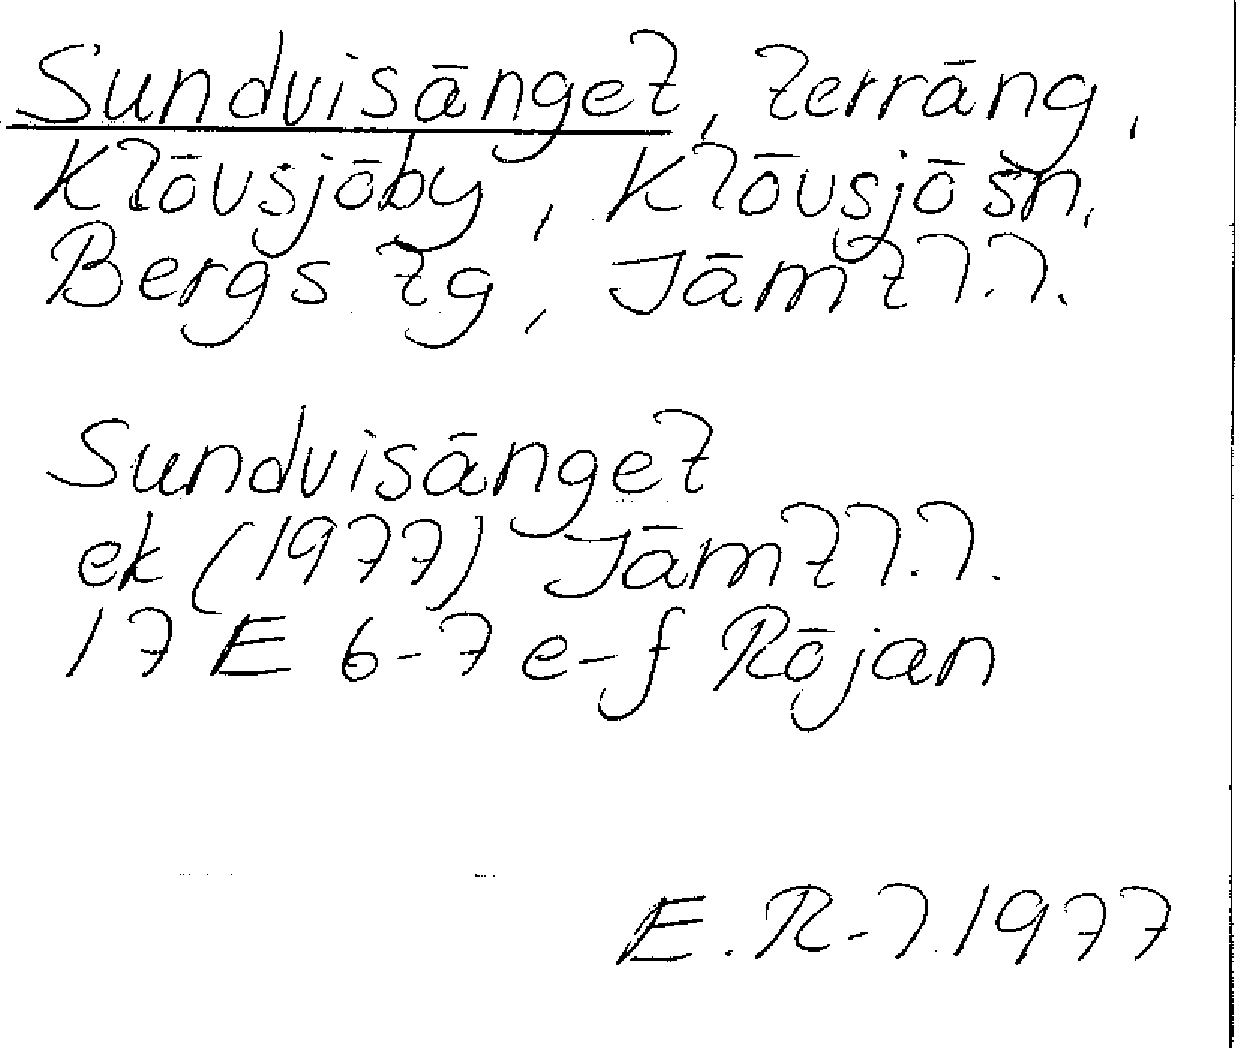 Sundvisänget, terräng,
Klövsjöby, Klövsjö sn,
Bergs tg, Jämtl.l.
Sundvisänget
ek (1977) Jämtl.l.
17 E 6-7 e-f Röjan
E. R-l. 1977